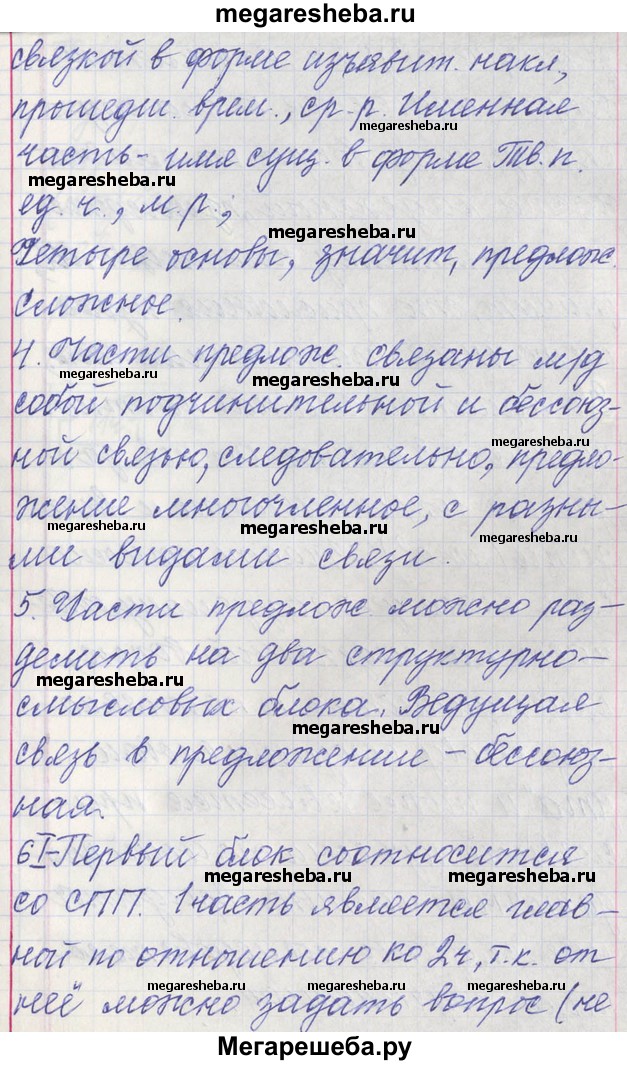 megaresheba.ru
связкой в форме изъявит. накл,
прошедш. врем., ср. р. Именная
megaresheba.ru
часть - имя сущ. в форме Тв. п.
megaresheba.ru
ед. ч., м. р.;
megaresheba.ru
Четыре основы, значит, предлож.
сложное.
4. Части предлож. связаны м/д
megaresheba.ru megaresheba.ru
собой подчинительной и бессоюз-
megaresheba.ru
ной связью, следовательно, предло-
жение многочленное, с разны-
megaresheba.ru megaresheba.ru megaresheba.ru
ми видами связи.
5. Части предлож. можно раз-
делить на два структурно-
megaresheba.ru
смысловых блока. Ведущая
megaresheba.ru
связь в предложении - бессоюз-
ная.
6 I - Первый блок соотносится
megaresheba.ru megaresheba.ru
со СПП. 1 часть является глав-
ной по отношению ко 2 ч, т. к. от
megaresheba.ru megaresheba.ru megaresheba.ru
неё можно задать вопрос (не
Мегарешеба.ру